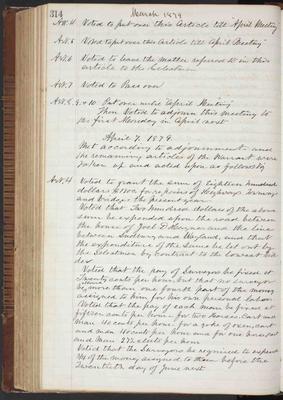 314 March 1879
Art. 4 Voted to put over this Article till April Meeting
Art. 5 Voted to put over this Article till April Meeting
Art. 6 Voted to leave the matter referred to in this
article to the Selectmen
Art. 7 Voted to Pass over
Art. 8, 9, + 10 Put over until April Meeting
Then Voted to adjourn this meeting to
the first Monday in April next
April 7, 1879.
Met according to adjournment and
the remaining articles of the Warrant were
taken up and acted upon as follows
Art. 4 Voted to grant the sum of Eighteen Hundred
dollars for repairs of Highways
and bridges the present year
Voted that two Hundred dollars of the above
sum be expended upon the road between
the house of Joel and the line
between Sudbury and Wayland and that
the expenditure of the same be let out by
the Selectmen by Contract to the lowest bid
der
Voted that the pay of Surveyors be fixed at
Twenty cents per hour, but that no surveyor
have more than one fourth part of the money
assigned to him for his own personal labor
Voted that the pay of each man be fixed at
fifteen cents per hour for two horses, cart and
man 40 cents per hour for a yoke of oxen, cart
and man 40 cents per hour and for one horse cart
and man 27½ cents per hour
Voted that the Surveyors be required to expend
3/4 of the money assigned to them before the
Twentieth day of June next